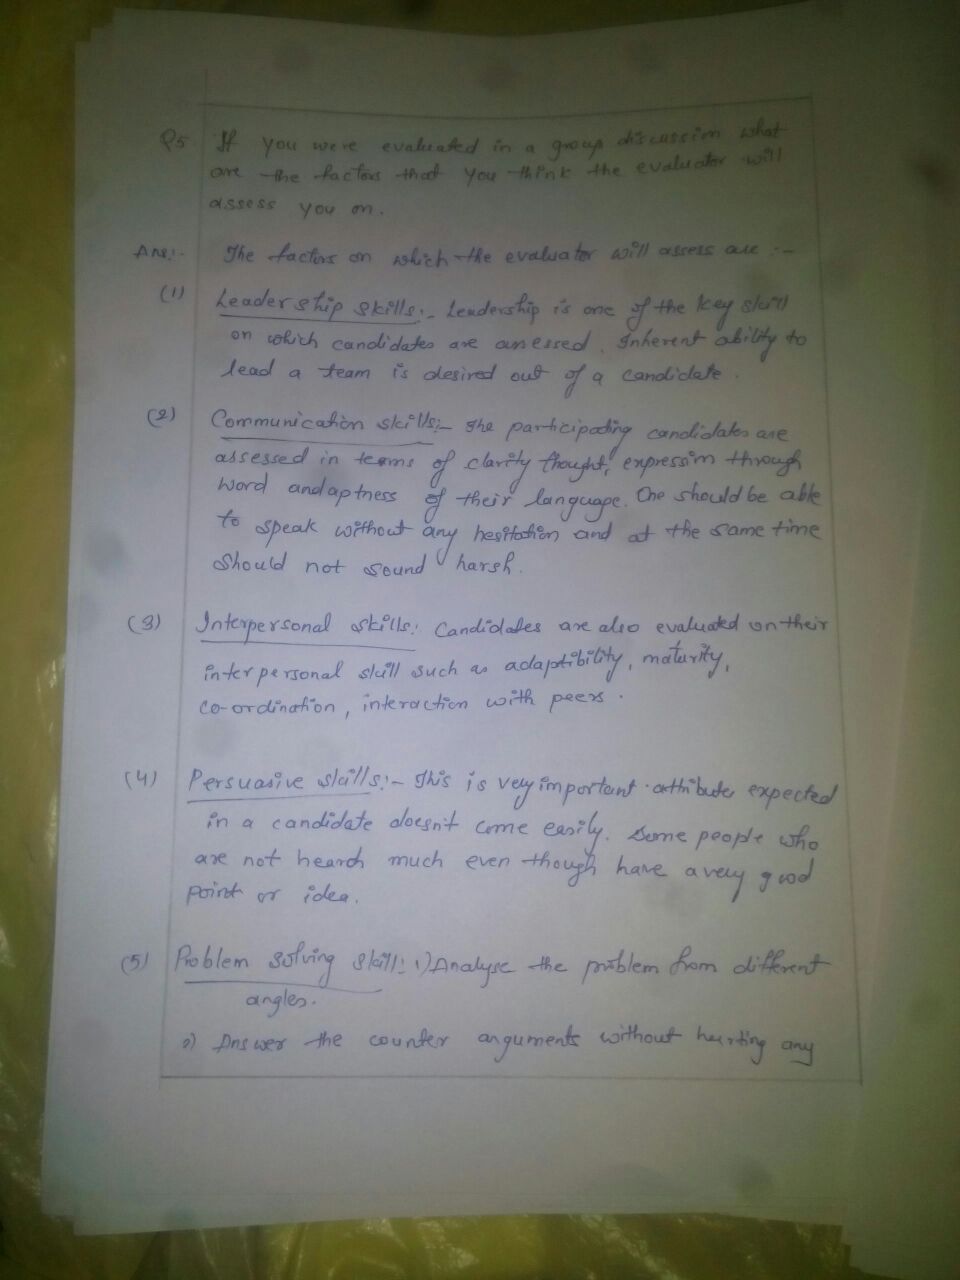 Q5. If you were evaluated in a group discussion what
are the factors that you think the evaluator will
assess you on.
Ans:- The factors on which the evaluator will assess are :-
(1) Leadership skills:- Leadership is one of the key skill
on which candidates are assessed. Inherent ability to
lead a team is desired out of a candidate.
(2) Communication skills:- The participating candidates are
assessed in terms of clarity thought, expression through
word and aptness of their language. One should be able
to speak without any hesitation and at the same time
should not sound harsh.
(3) Interpersonal skills: Candidates are also evaluated on their
interpersonal skill such as adaptibility, maturity,
co-ordination, interaction with peers.
(4) Persuasive skills:- This is very important attribute expected
in a candidate doesn't come easily. Some people who
are not heard much even though have a very good
point or idea.
(5) Problem solving skill: 1) Analyse the problem from different
angles.
2) Answer the counter arguments without hurting any